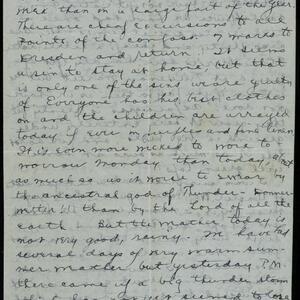 was than in a large part of the year.
There are cheap excursions to all
points of the compass 7 marks to
Dresden and return. It seems
a sin to stay at home, but that
is only one of the sins we are guilty
of. Everyone has his best clothes
on and the children are arrayed
today if ever in purples and fine linen.
It is even more wicked to work to-
morrow Monday than today, about
as much so as it worse to swear by
the ancestral god of Thunder - Donner
wetter!!! than by the Lord of all the
earth. But the weather today is
most very good, rainy. We have had
several days of very warm sum-
mer weather but yesterday P.M.
there came up a big thunder storm
seemed to